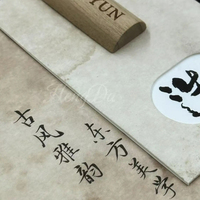 YUN
古风雅韵
东方美学